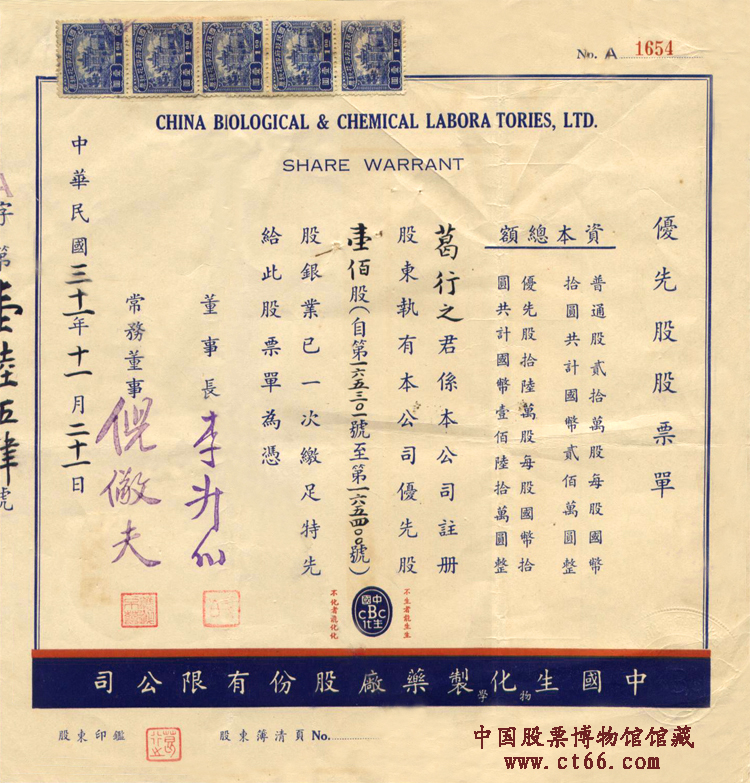 No. A 1654
CHINA BIOLOGICAL & CHEMICAL LABORATORIES, LTD.
SHARE WARRANT
優先股股票單
資本總額
普通股貳拾萬股每股國幣
拾圓共計國幣貳佰萬圓整
優先股拾陸萬股每股國幣拾
圓共計國幣壹佰陸拾萬圓整
葛行之君係本公司註冊
股東執有本公司優先股
壹佰股(自第一六五三〇一號至第一六五四〇〇號)
股銀業已一次繳足特先
給此股票單為憑
董事長
常務董事 倪徵夫
中華民國三十一年十一月二十一日
A字第壹陸五肆號
不生者能生生
中國
CBC
生化
不化者能化化
中國生化製藥廠股份有限公司
物學
股東印鑑
股東簿清頁No.
中国股票博物馆馆藏
www.ct66.com